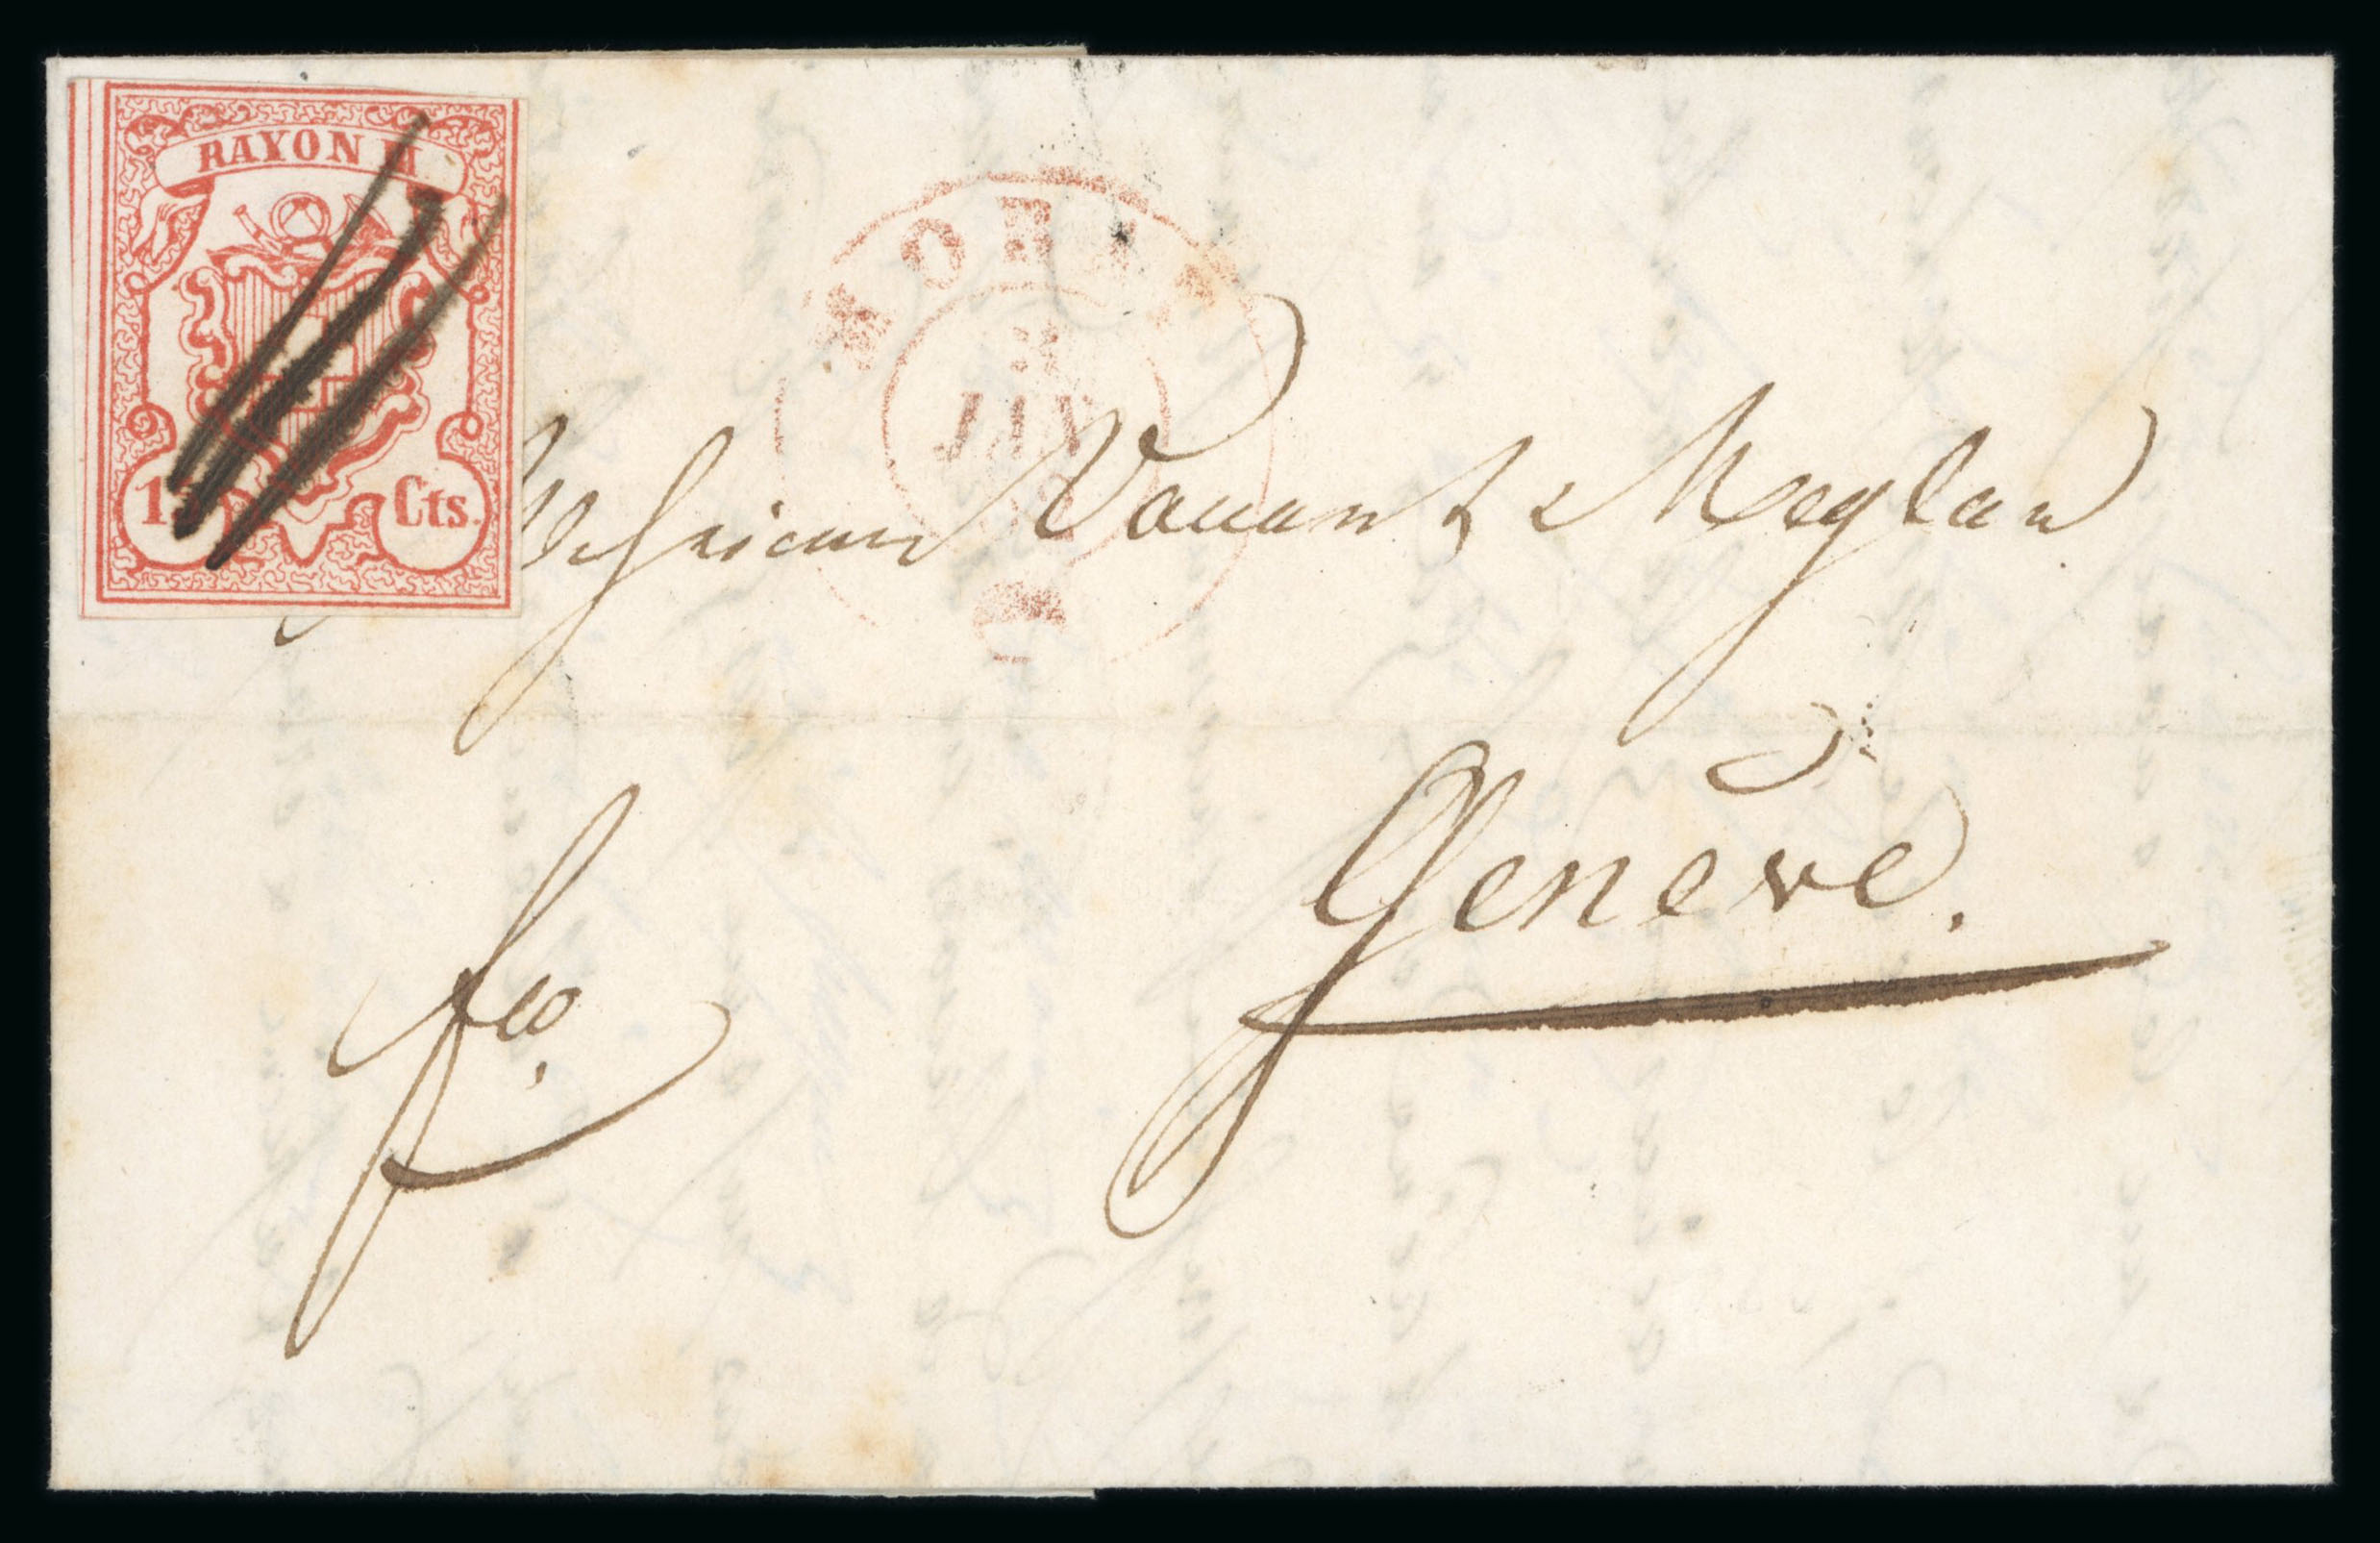 RAYON III
Cts.
JAN
Messieurs Vauant & Meylan
Genève.
fco.